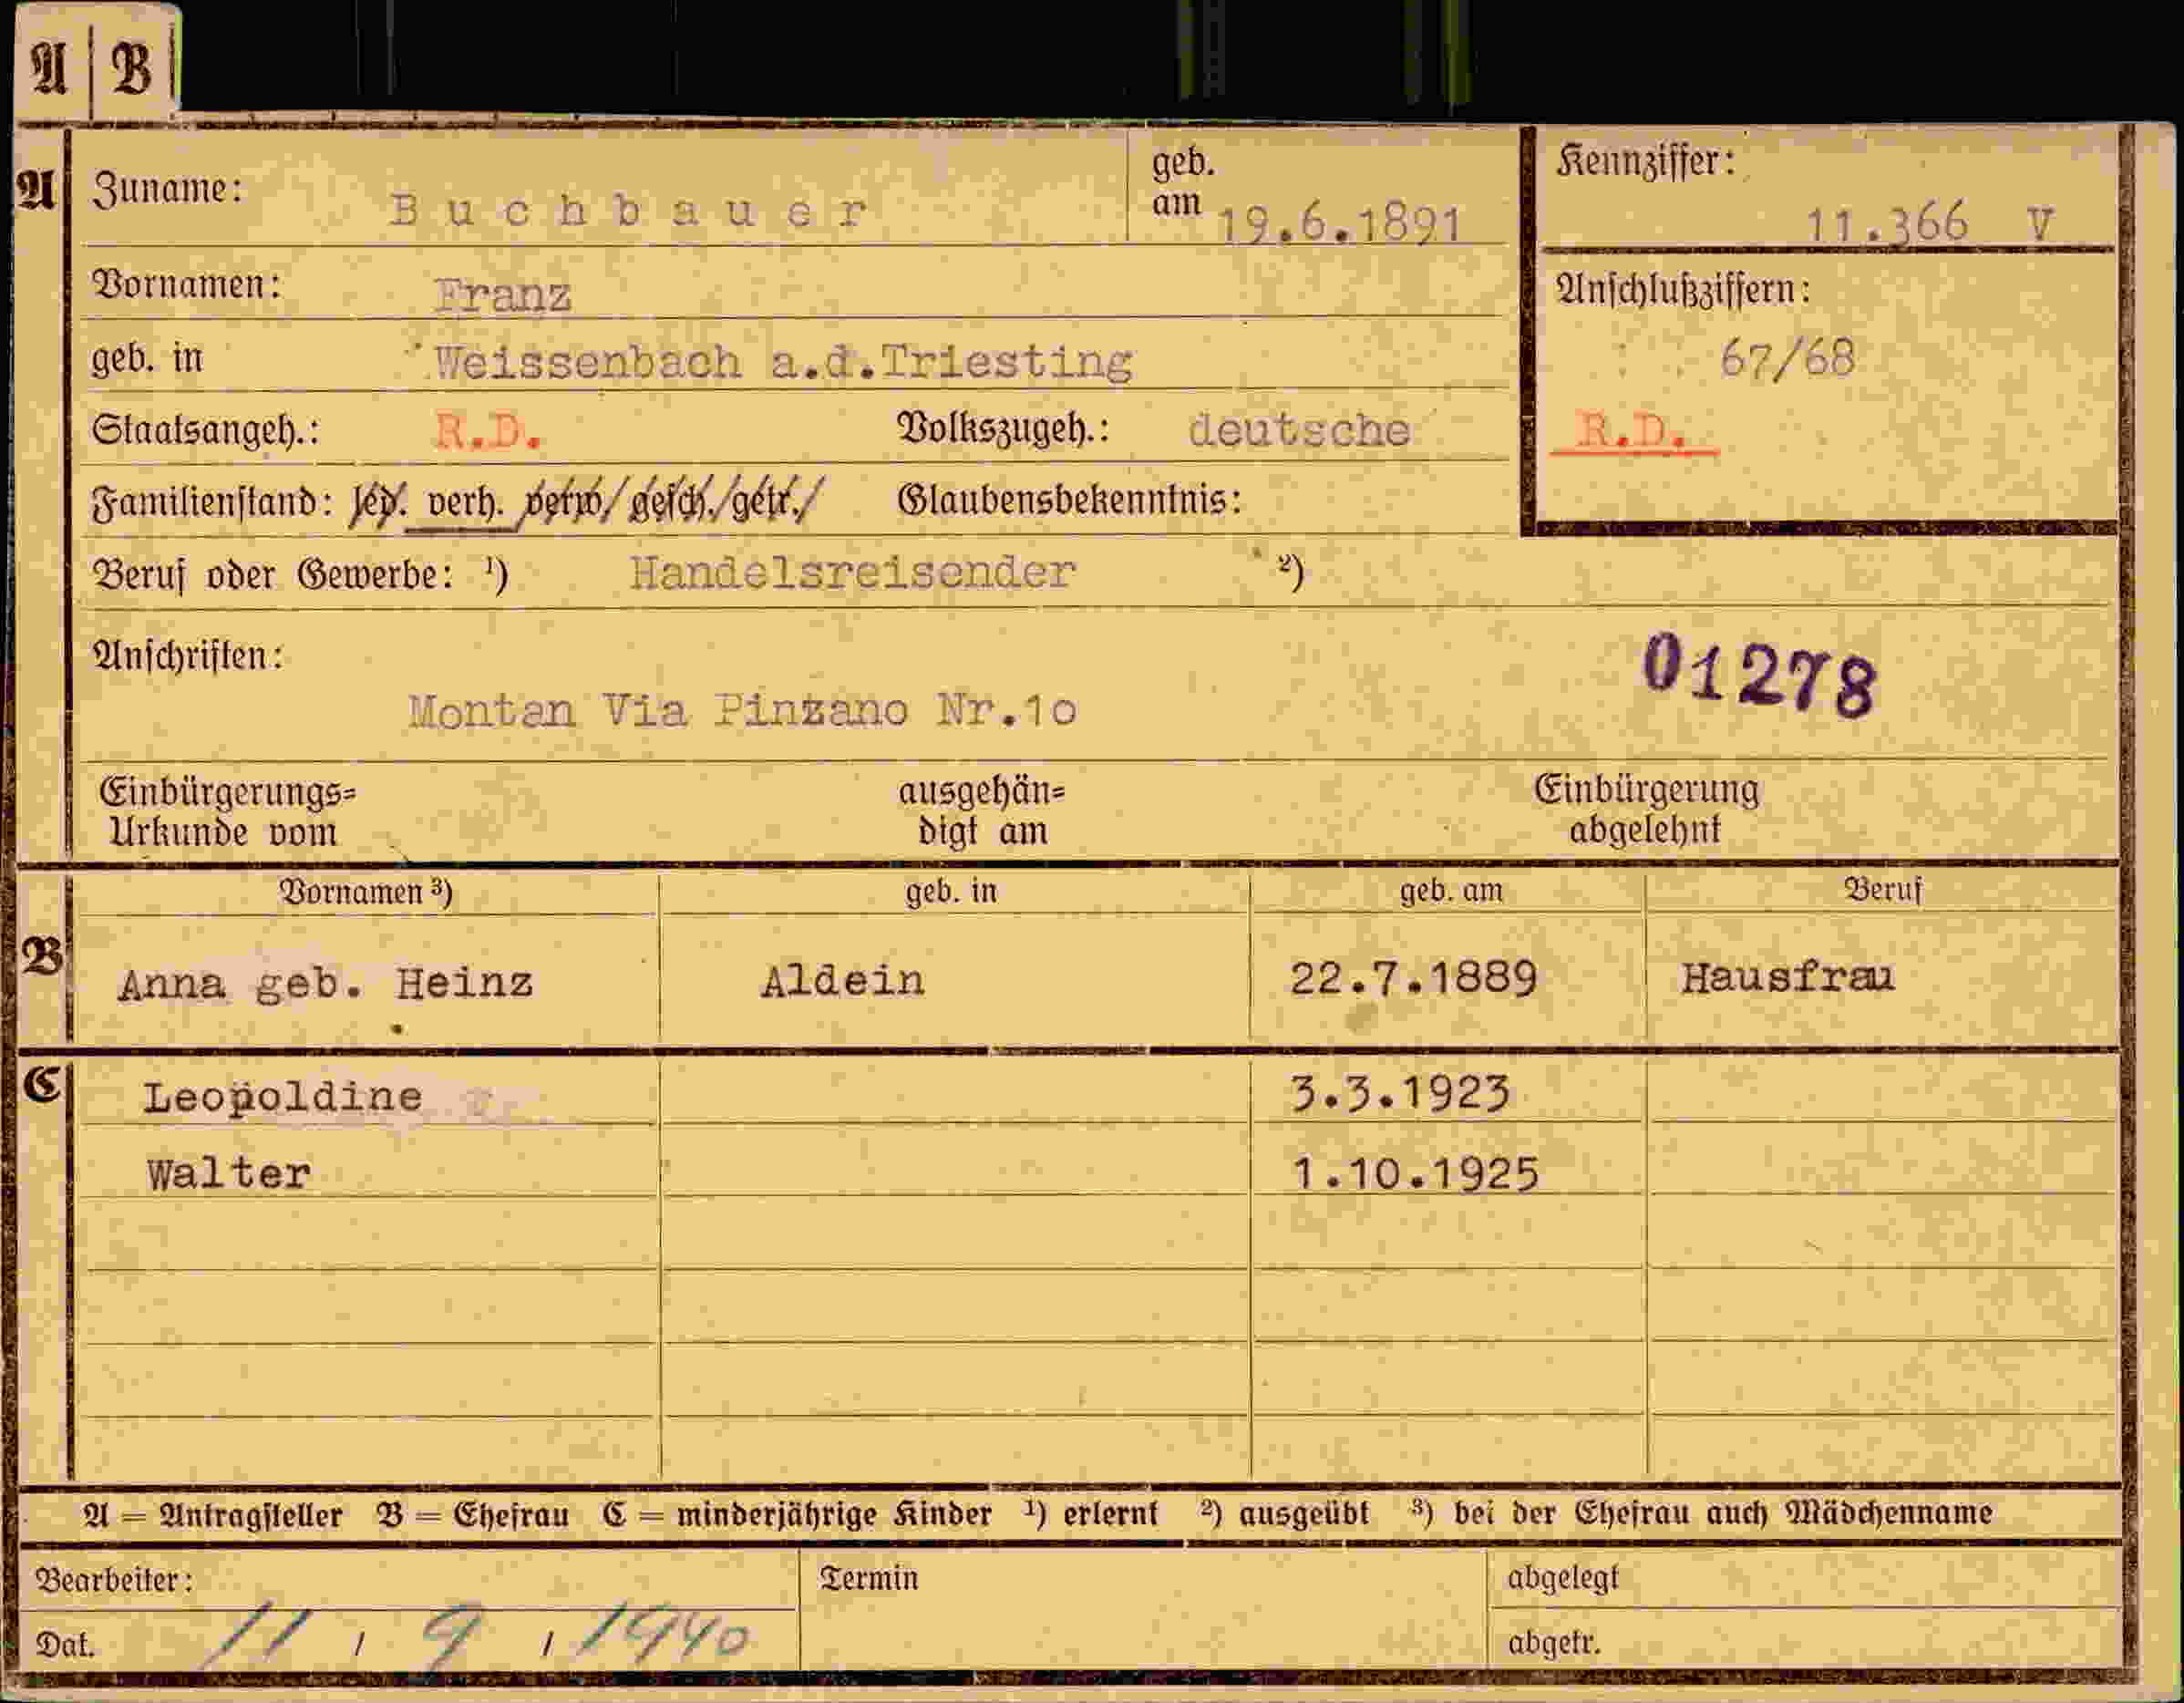 A B
A Zuname: Buchbauer geb. am 19.6.1891 Kennziffer: 11.366 V
Vornamen: Franz Anschlußziffern:
geb. in Weissenbach a.d.Triesting 67/68
Staatsangeh.: R.D. Volkszugeh.: deutsche R.D.
Familienstand: led. verh. verw/ gesch./getr./ Glaubensbekenntnis:
Beruf oder Gewerbe: ¹) Handelsreisender ²)
Anschriften: 01278
Montan Via Pinzano Nr.10
Einbürgerungs= ausgehän= Einbürgerung
Urkunde vom digt am abgelehnt
Vornamen ³) geb. in geb. am Beruf
B Anna geb. Heinz Aldein 22.7.1889 Hausfrau
C Leopoldine 3.3.1923
Walter 1.10.1925
A = Antragsteller B = Ehefrau C = minderjährige Kinder ¹) erlernt ²) ausgeübt ³) bei der Ehefrau auch Mädchenname
Bearbeiter: Termin abgelegt
Dat. 11 / 9 / 1940 abgetr.